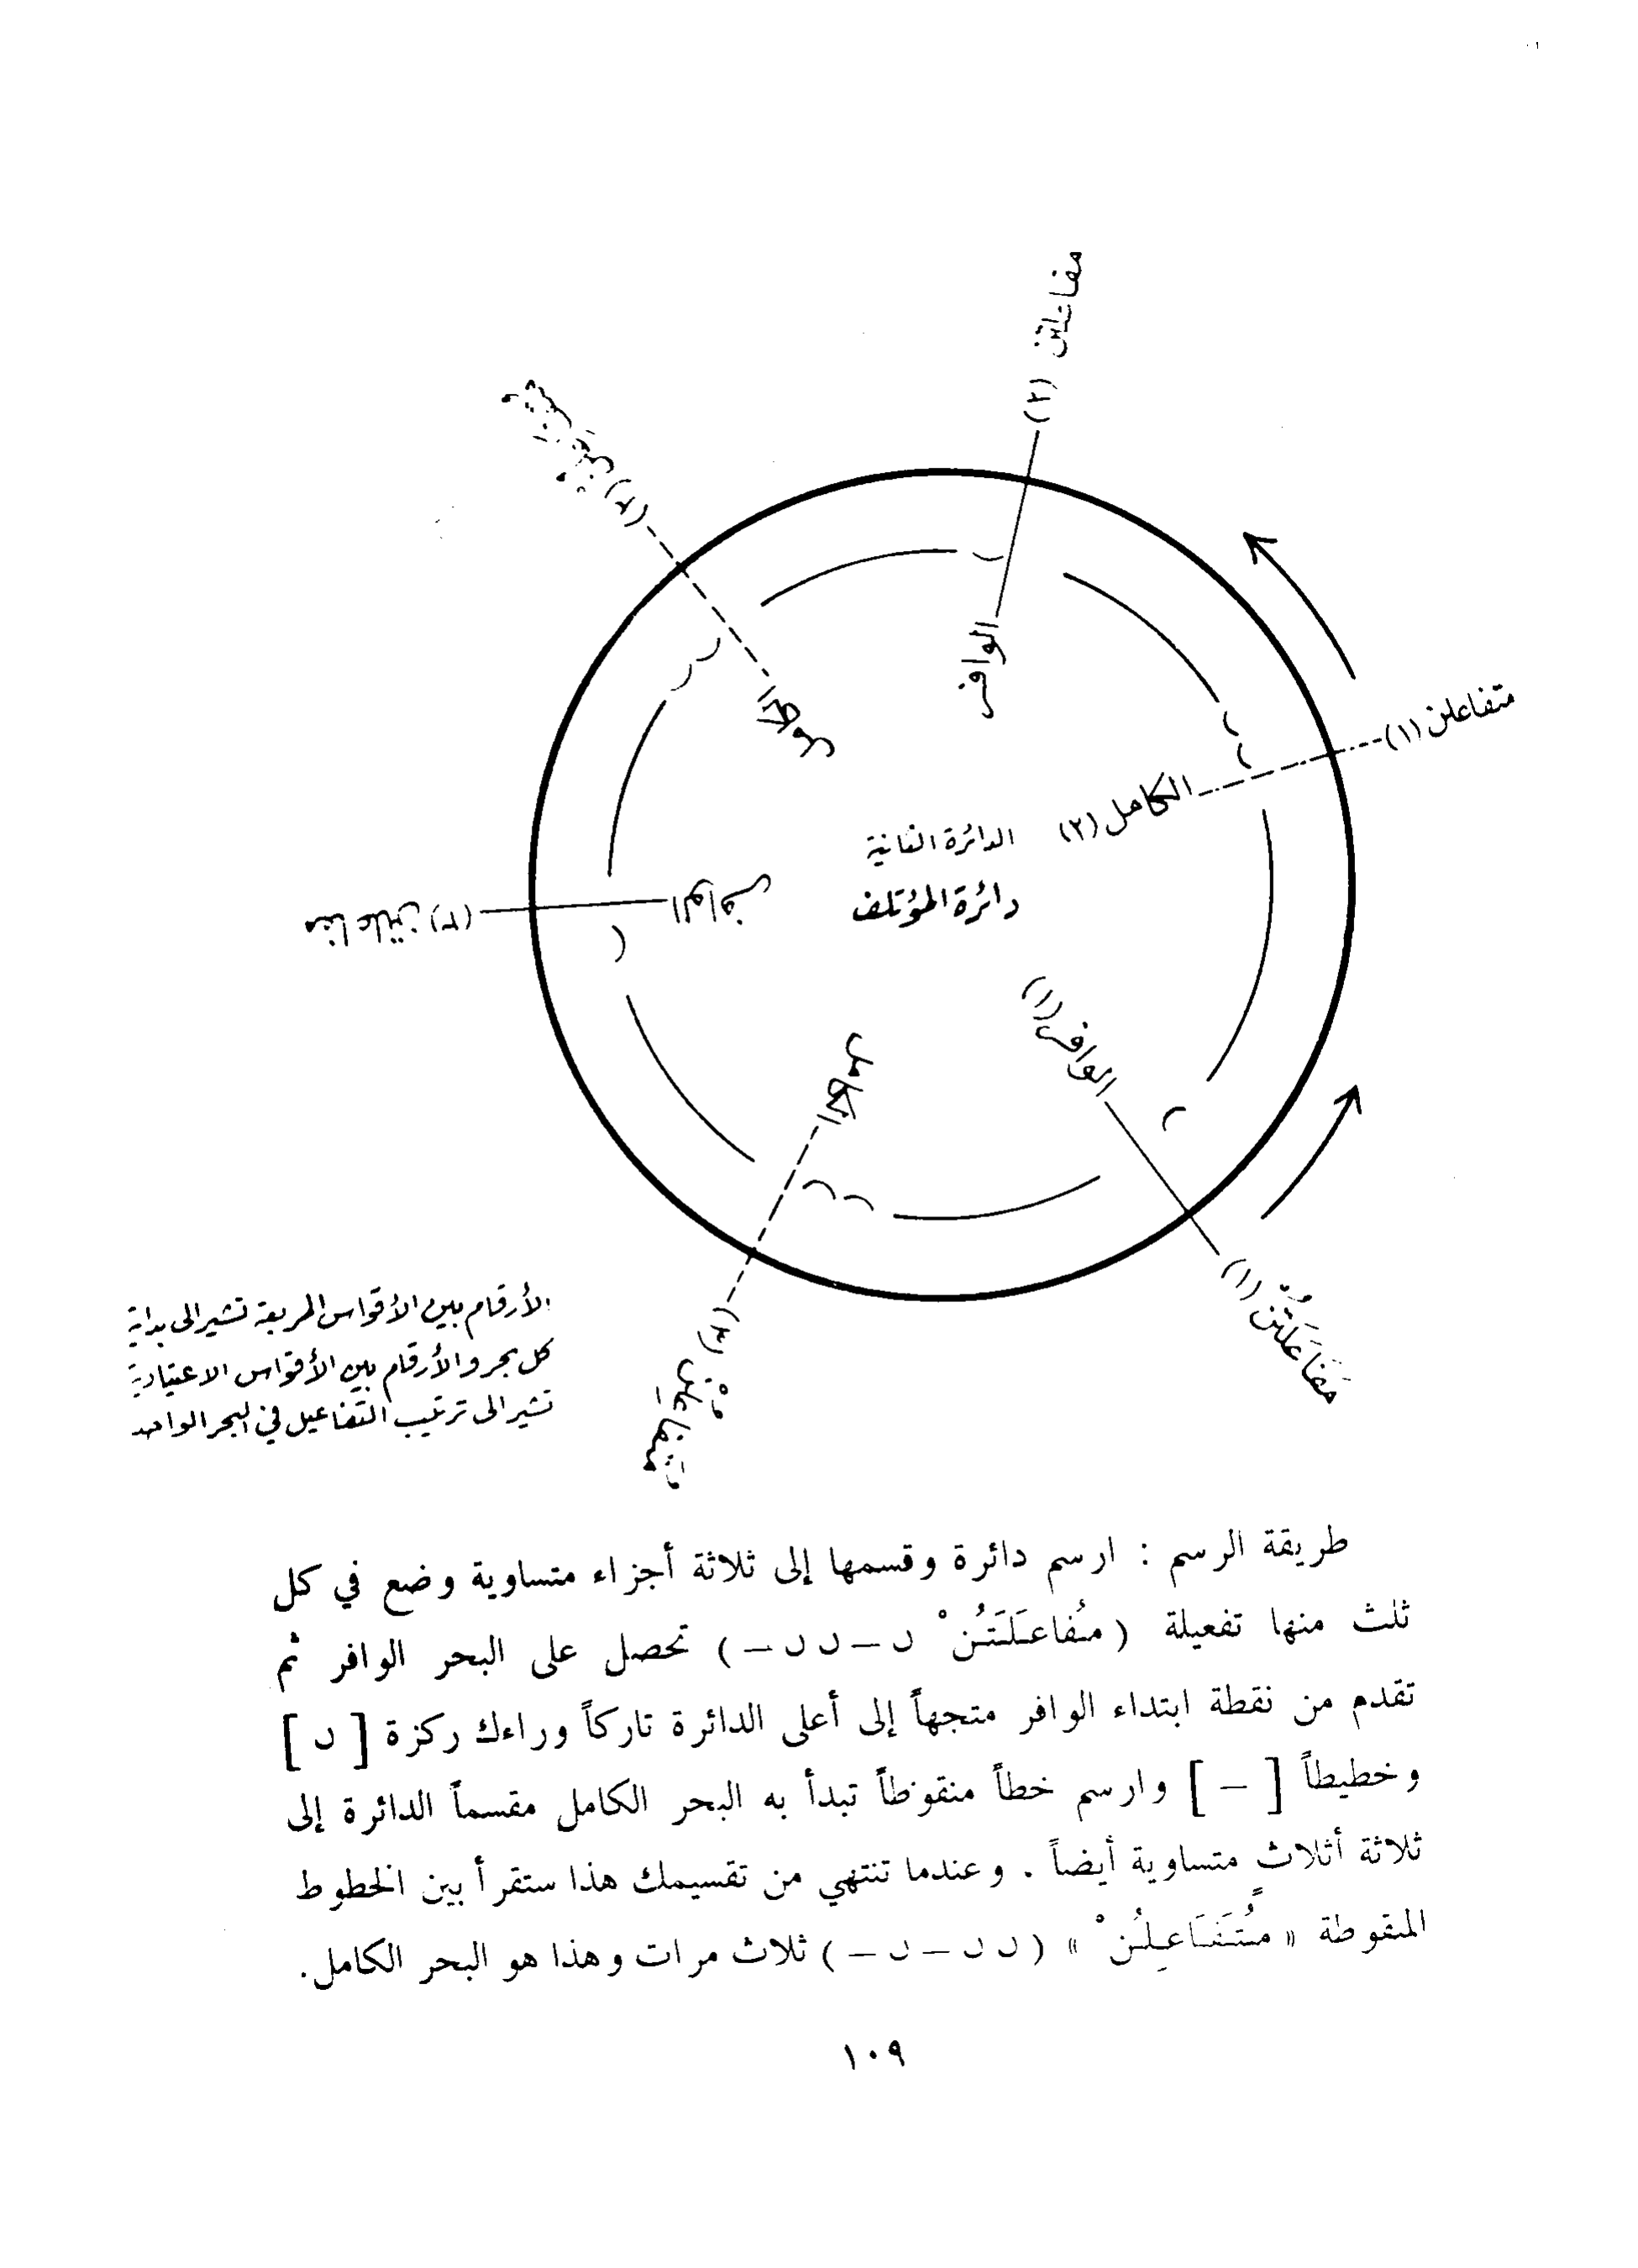 مفاعلتن (٢)
(٢)
متفاعلن (١)
الوافر
الكامل (٢)
الدائرة الثانية
دائرة المؤتلف
الوافر
مفاعلتن (٣)
الوافر (١)
الكامل
مُفَاعَلَتُنْ (١)
متفاعلن (٣)
الأرقام بين الأقواس المربعة تشير الى بداية
كل بحر والأرقام بين الأقواس الاعتيادية
تشير الى ترتيب التفاعيل في البحر الواحد
طريقة الرسم : ارسم دائرة وقسمها إلى ثلاثة أجزاء متساوية وضع في كل
ثلث منها تفعيلة ( مُفاعَلَتُنْ ں – ں ں – ) تحصل على البحر الوافر ثم
تقدم من نقطة ابتداء الوافر متجهاً إلى أعلى الدائرة تاركاً وراءك ركزة [ ں ]
وخطيطاً [ – ] وارسم خطاً منقوطاً تبدأ به البحر الكامل مقسماً الدائرة إلى
ثلاثة أثلاثٍ متساوية أيضاً . وعندما تنتهي من تقسيمك هذا ستقرأ بين الخطوط
المنقوطة « مُتَفَاعِلُنْ » ( ں ں – ں – ) ثلاث مرات وهذا هو البحر الكامل.
١٠٩